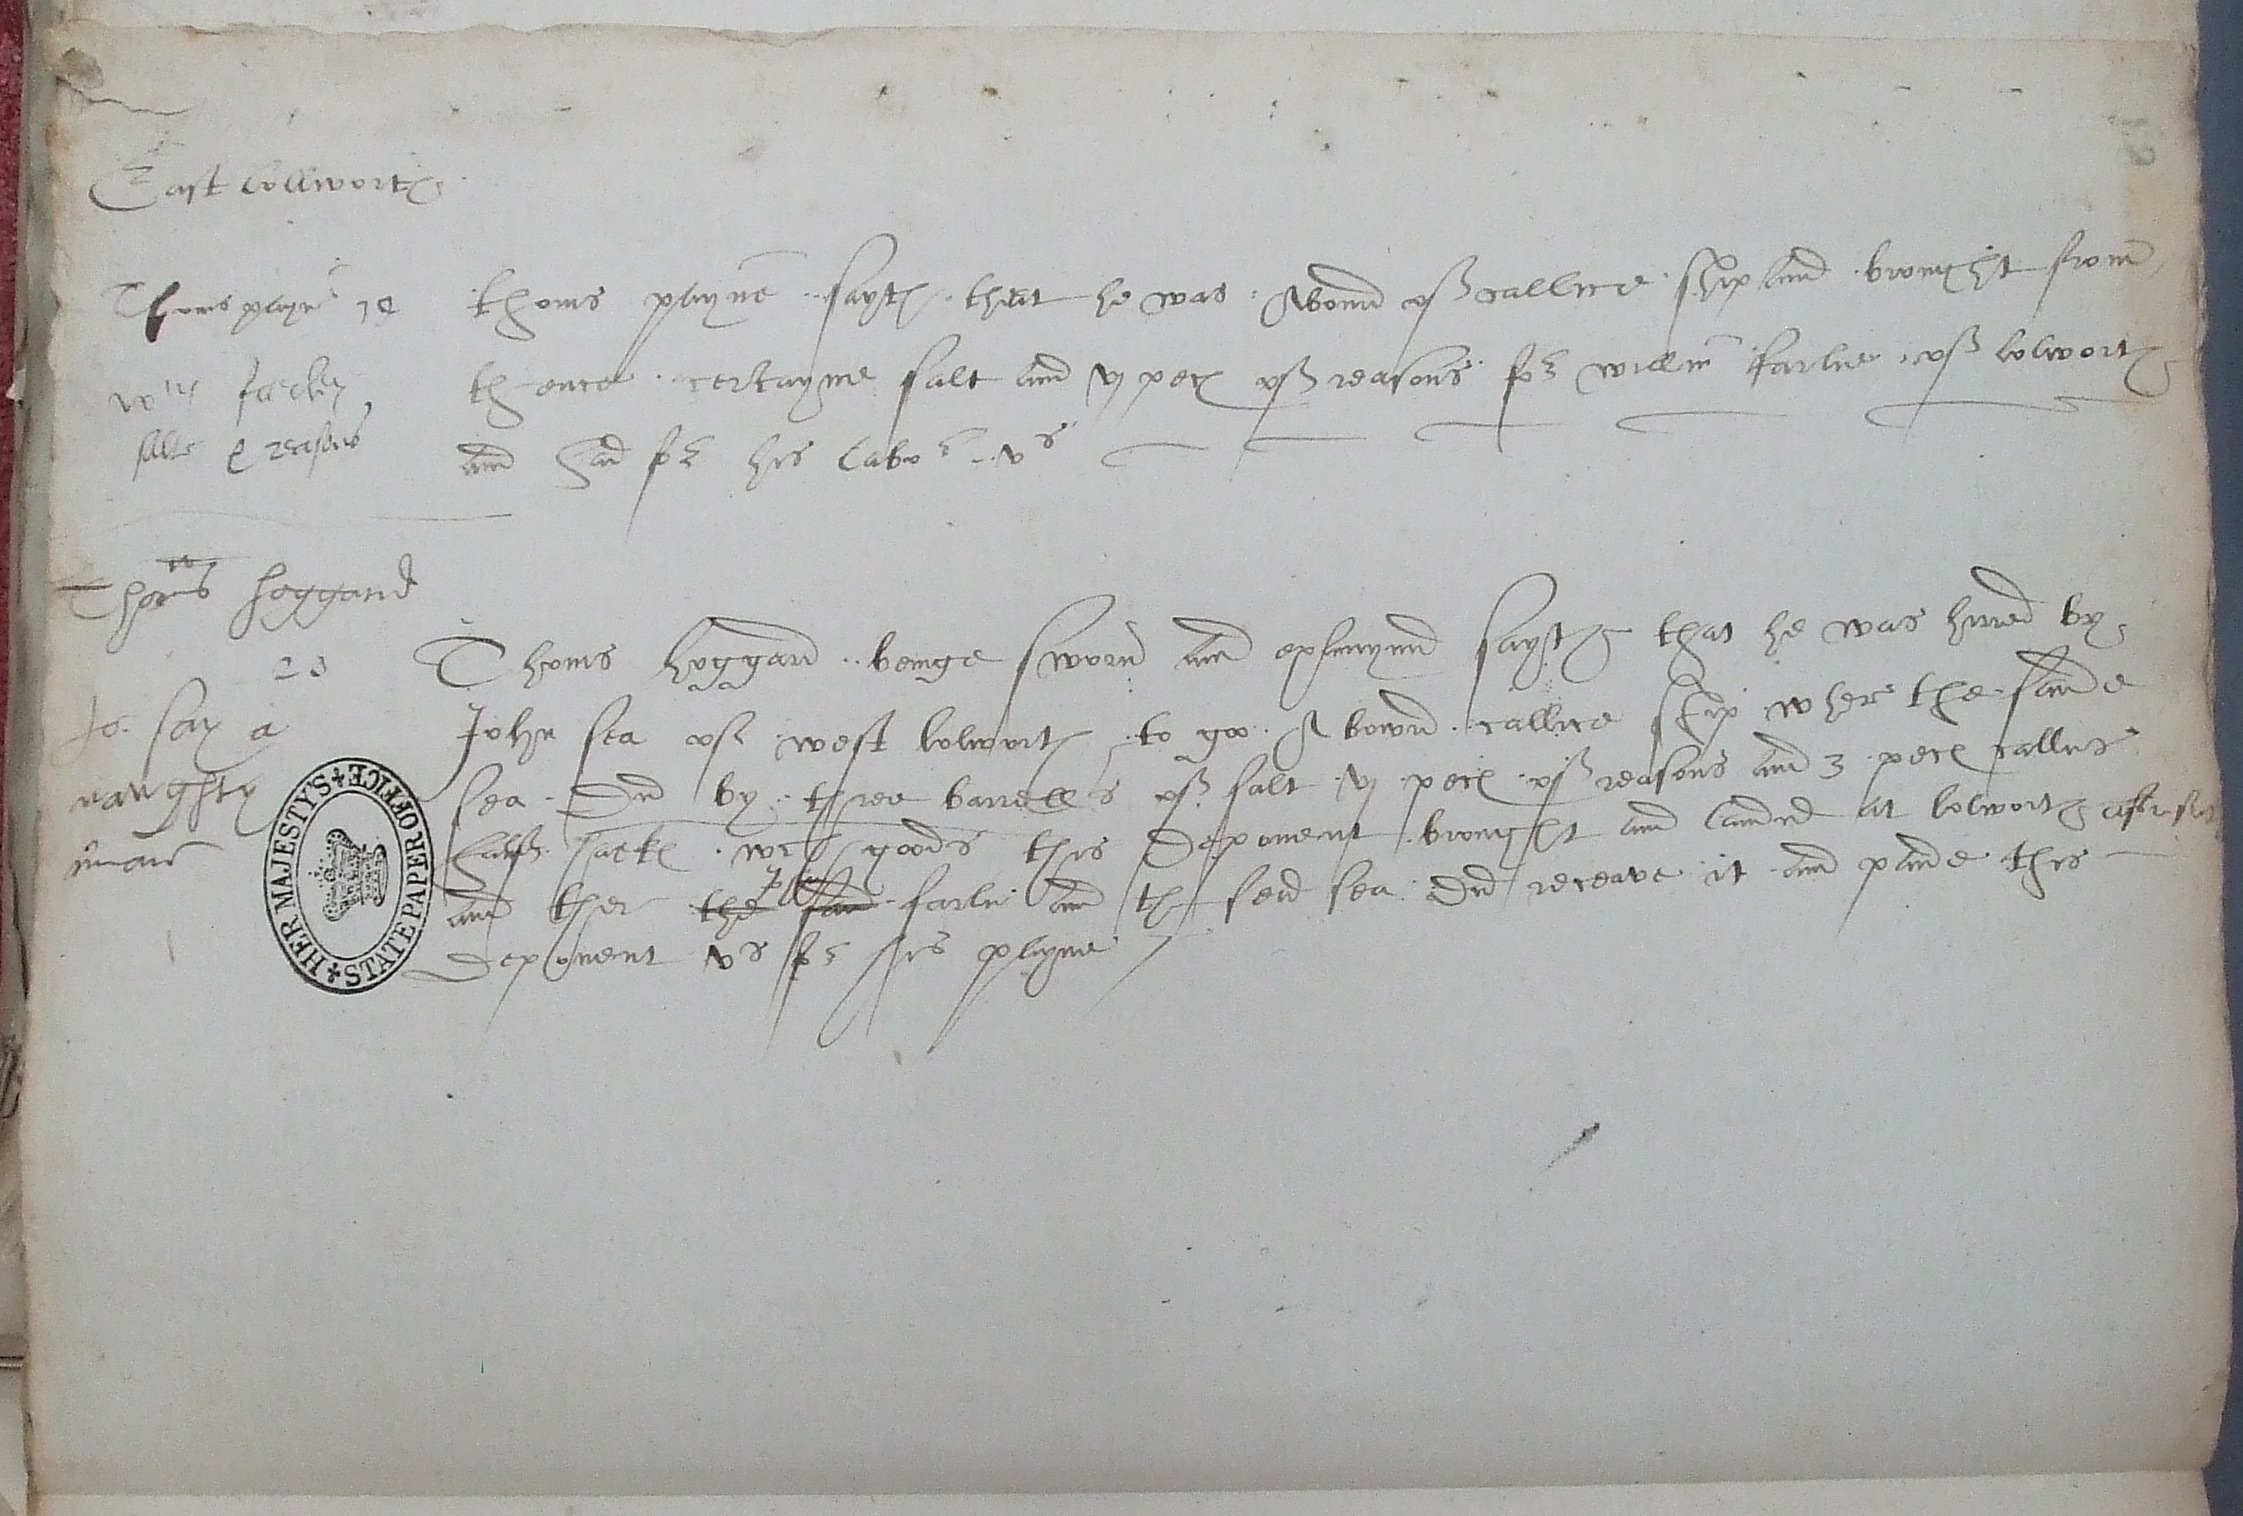 East lollworth
Thoms payne 19
thoms payne sayth that he was Abord off callice ship and brought from
Wm farley
thence certayne salt and vj pece off reasons for willm farlie off lolworth
salte & reasons
and had for his labor vs
Thoms hoggard
23
Thoms hoggard beinge sworn and exsamynd sayth that he was hired by
to say a
John sea off west lolworth to goo A bord callice ship wher the saide
naughty
sea did by three barrells off salt vj pece off reasons and 3 pece callme
man
sackes wch goods this deponent brought and landed at lolworth
and ther the said farlie and the seid sea did receave it and paide this
deponent vs for his payne
HER MAJESTY'S STATE PAPER OFFICE